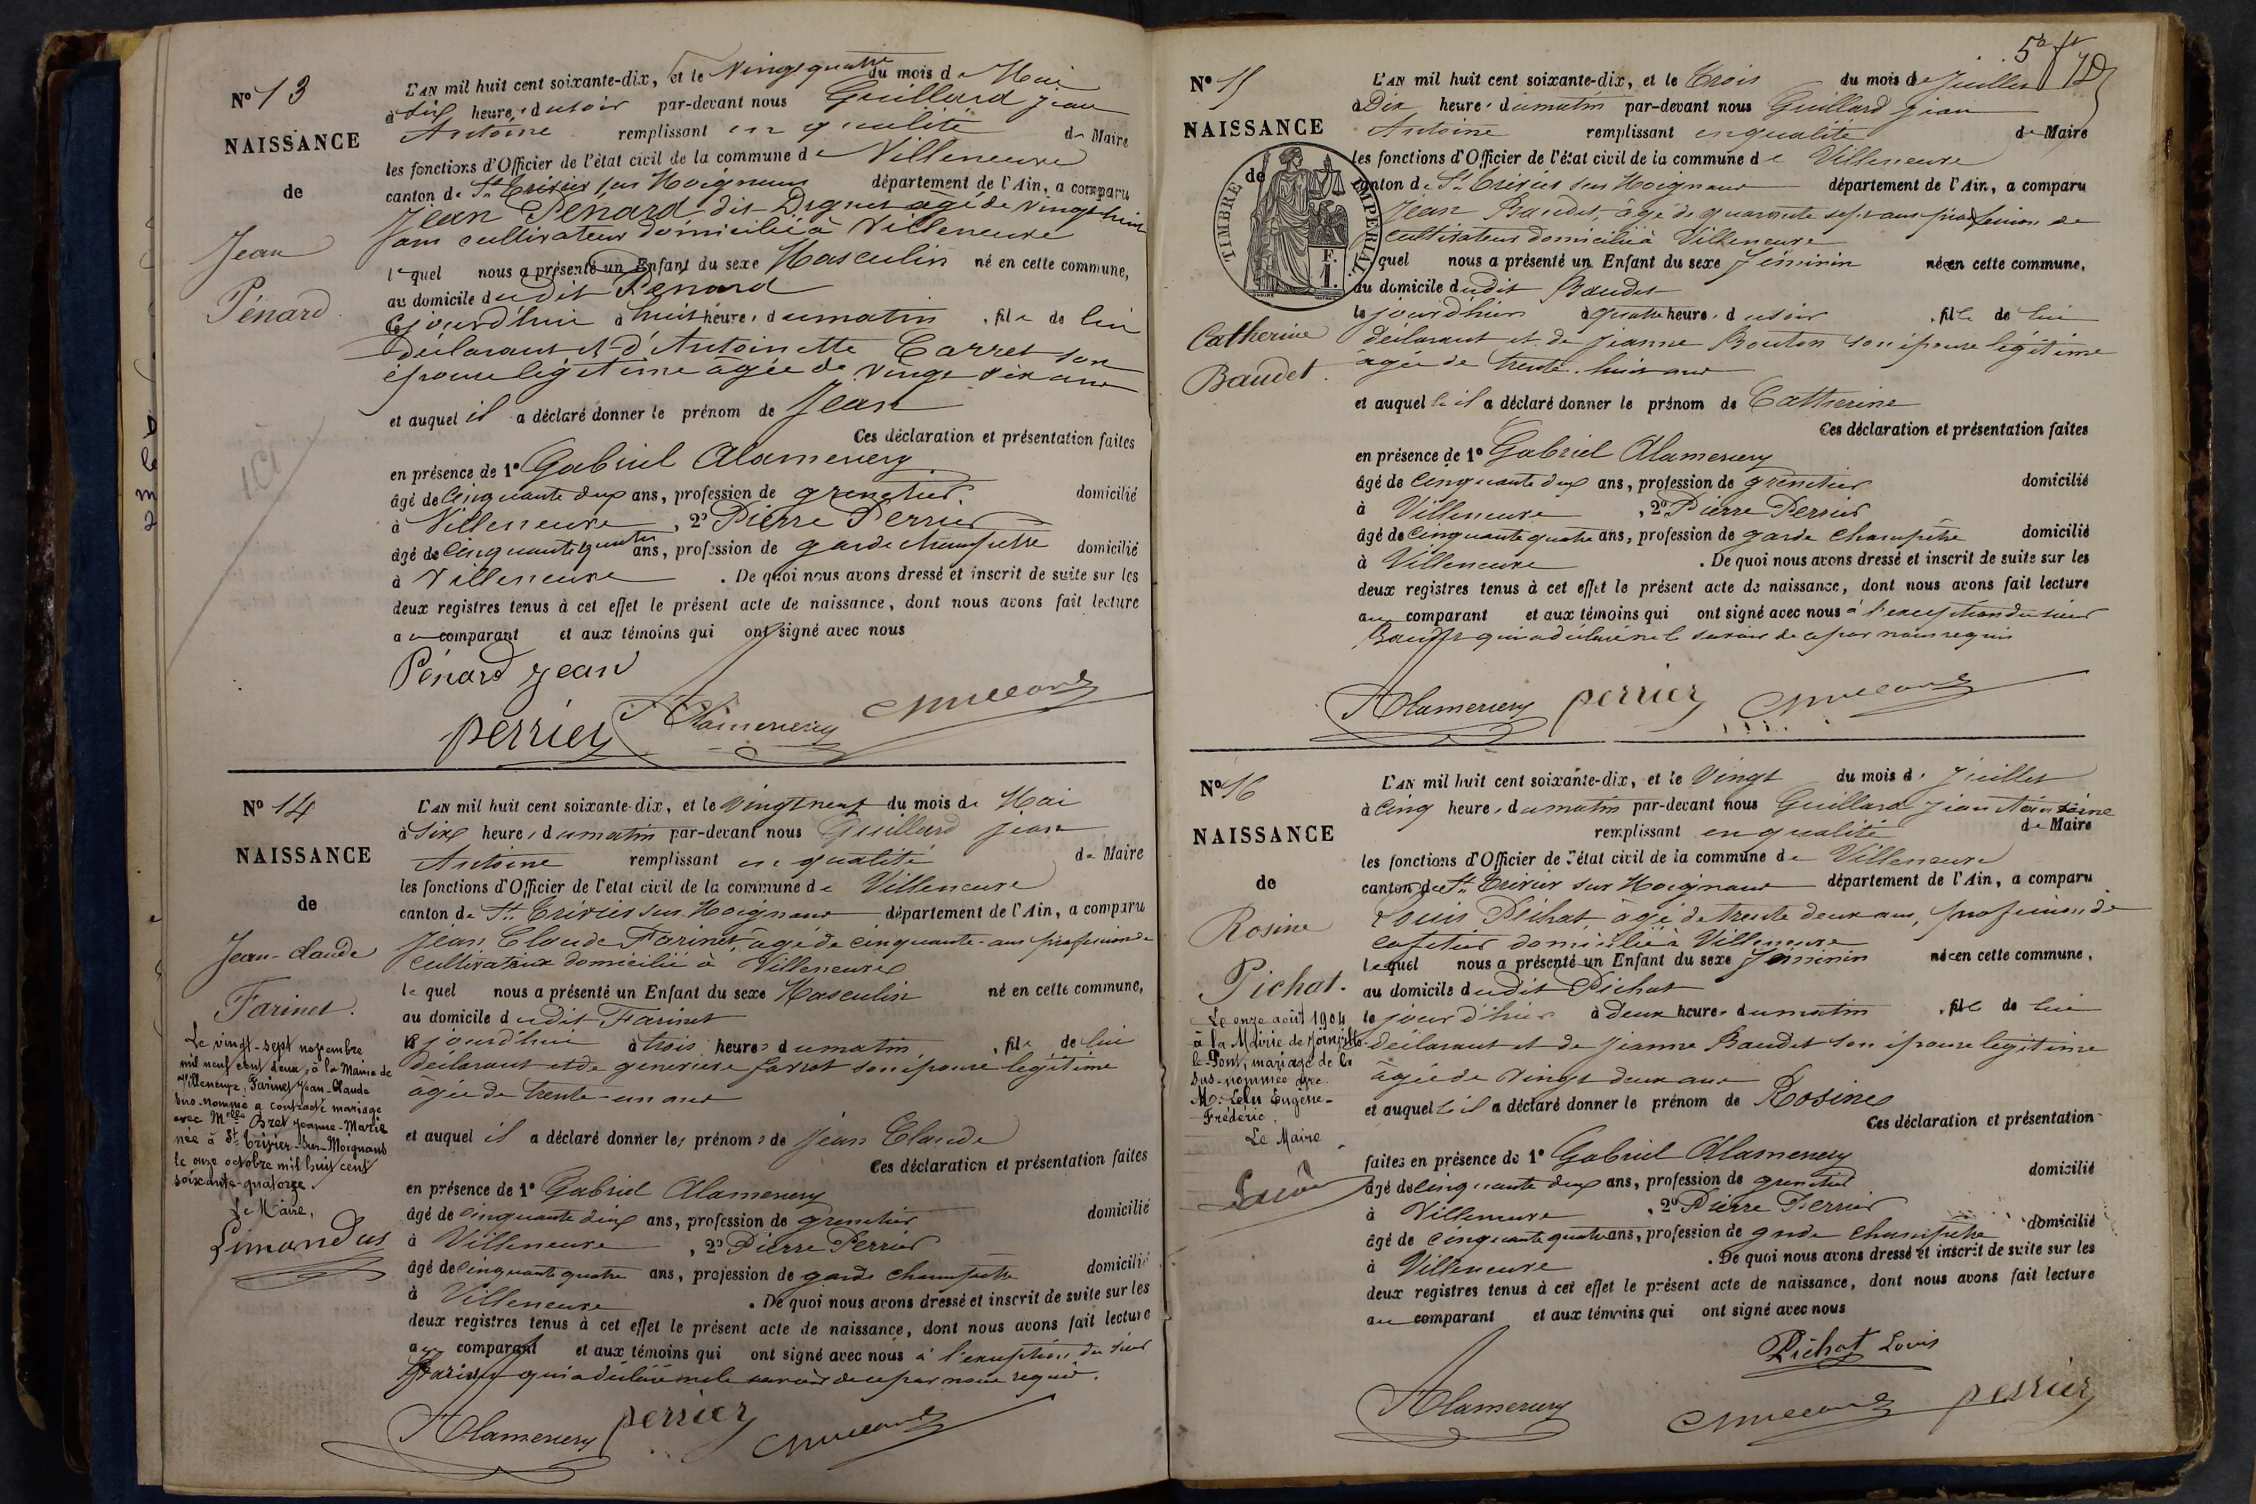 N° 13
NAISSANCE
de
Jean
Pénard
L'AN mil huit cent soixante-dix, et le Vingt quatre du mois de Mai
à six heures du soir par-devant nous Guillard Jean
Antoine remplissant en qualité de Maire
les fonctions d'Officier de l'état civil de la commune de Villeneuve
canton de St Trivier sur Moignans département de l'Ain, a comparu
Jean Penard dit Dignet âgé de vingt huit
ans cultivateur domicilié à Villeneuve
lequel nous a présenté un Enfant du sexe Masculin né en cette commune,
au domicile dudit Penard
cejourd'hui à huit heures du matin, fils de lui
déclarant et d'Antoinette Carret son
épouse légitime âgée de vingt six ans
et auquel il a déclaré donner le prénom de Jean
Ces déclaration et présentation faites
en présence de 1° Gabriel Alamercery
âgé de Cinquante deux ans, profession de grenetier domicilié
à Villeneuve, 2° Pierre Perrier
âgé de Cinquante quatre ans, profession de garde champêtre domicilié
à Villeneuve. De quoi nous avons dressé et inscrit de suite sur les
deux registres tenus à cet effet le présent acte de naissance, dont nous avons fait lecture
au comparant et aux témoins qui ont signé avec nous
Pénard Jean
perrier Alamercery
N° 14
NAISSANCE
de
Jean-Claude
Farinet.
Le vingt-sept novembre
mil neuf cent deux, à la Mairie de
Villeneuve, Farinet Jean-Claude
sus-nommé a contracté mariage
avec Melle Bret Jeanne-Marie
née à St Trivier-sur-Moignans
le onze octobre mil huit cent
soixante-quatorze.
Le Maire,
Limandas
L'AN mil huit cent soixante-dix, et le vingt neuf du mois de Mai
à six heures du matin par-devant nous Guillard Jean
Antoine remplissant en qualité de Maire
les fonctions d'Officier de l'état civil de la commune de Villeneuve
canton de St Trivier sur Moignans département de l'Ain, a comparu
Jean Claude Farinet, âgé de cinquante ans profession de
cultivateur domicilié à Villeneuve
lequel nous a présenté un Enfant du sexe Masculin né en cette commune,
au domicile dudit Farinet
cejourd'hui à trois heures du matin, fils de lui
déclarant et de genevieve favrot son épouse légitime
âgée de trente-un ans
et auquel il a déclaré donner les prénoms de Jean Claude
Ces déclaration et présentation faites
en présence de 1° Gabriel Alamercery
âgé de cinquante deux ans, profession de grenetier domicilié
à Villeneuve, 2° Pierre Perrier
âgé de cinquante quatre ans, profession de garde champêtre domicilié
à Villeneuve. De quoi nous avons dressé et inscrit de suite sur les
deux registres tenus à cet effet le présent acte de naissance, dont nous avons fait lecture
au comparant et aux témoins qui ont signé avec nous à l'exception du sieur
Farinet qui a déclaré ne le savoir de ce par nous requis.
Alamercery perrier
N° 15
NAISSANCE
de
TIMBRE IMPERIAL
Catherine
Baudet.
L'AN mil huit cent soixante-dix, et le Trois du mois de Juillet
à Dix heures du matin par-devant nous Guillard Jean
Antoine remplissant en qualité de Maire
les fonctions d'Officier de l'état civil de la commune de Villeneuve
canton de St Trivier sur Moignans département de l'Ain, a comparu
Jean Baudet, âgé de quarante sept ans profession de
cultivateur domicilié à Villeneuve
quel nous a présenté un Enfant du sexe féminin née en cette commune,
au domicile dudit Baudet
le jourd'hier à quatre heures du soir, fille de lui
déclarant et de Jeanne Bouton son épouse légitime
âgée de trente-huit ans
et auquelle il a déclaré donner le prénom de Catherine
Ces déclaration et présentation faites
en présence de 1° Gabriel Alamercery
âgé de Cinquante deux ans, profession de grenetier domicilié
à Villeneuve, 2° Pierre Perrier
âgé de Cinquante quatre ans, profession de garde champêtre domicilié
à Villeneuve. De quoi nous avons dressé et inscrit de suite sur les
deux registres tenus à cet effet le présent acte de naissance, dont nous avons fait lecture
au comparant et aux témoins qui ont signé avec nous à l'exception du sieur
Baudet qui a déclaré ne le savoir de ce par nous requis
Alamercery perrier
N° 16
NAISSANCE
de
Rosine
Pichat.
Le onze août 1904
à la Mairie de Joinville
le-Pont, mariage de la
sus-nommée avec
M. Lelu Eugène-
Frédéric
Le Maire
L'AN mil huit cent soixante-dix, et le Vingt du mois de Juillet
à Cinq heures du matin par-devant nous Guillard Jean Antoine
remplissant en qualité de Maire
les fonctions d'Officier de l'état civil de la commune de Villeneuve
canton de St Trivier sur Moignans département de l'Ain, a comparu
Louis Pichat âgé de trente deux ans, profession de
cafetier domicilié à Villeneuve
lequel nous a présenté un Enfant du sexe féminin née en cette commune,
au domicile dudit Pichat
le jourd'hier à Deux heures du matin, fille de lui
déclarant et de Jeanne Baudet son épouse légitime
âgée de vingt deux ans
et auquelle il a déclaré donner le prénom de Rosine
Ces déclaration et présentation
faites en présence de 1° Gabriel Alamercery
âgé de cinquante deux ans, profession de grenetier domicilié
à Villeneuve, 2° Pierre Perrier
âgé de cinquante quatre ans, profession de garde champêtre domicilié
à Villeneuve. De quoi nous avons dressé et inscrit de suite sur les
deux registres tenus à cet effet le présent acte de naissance, dont nous avons fait lecture
au comparant et aux témoins qui ont signé avec nous
Pichat Louis
Alamercery perrier